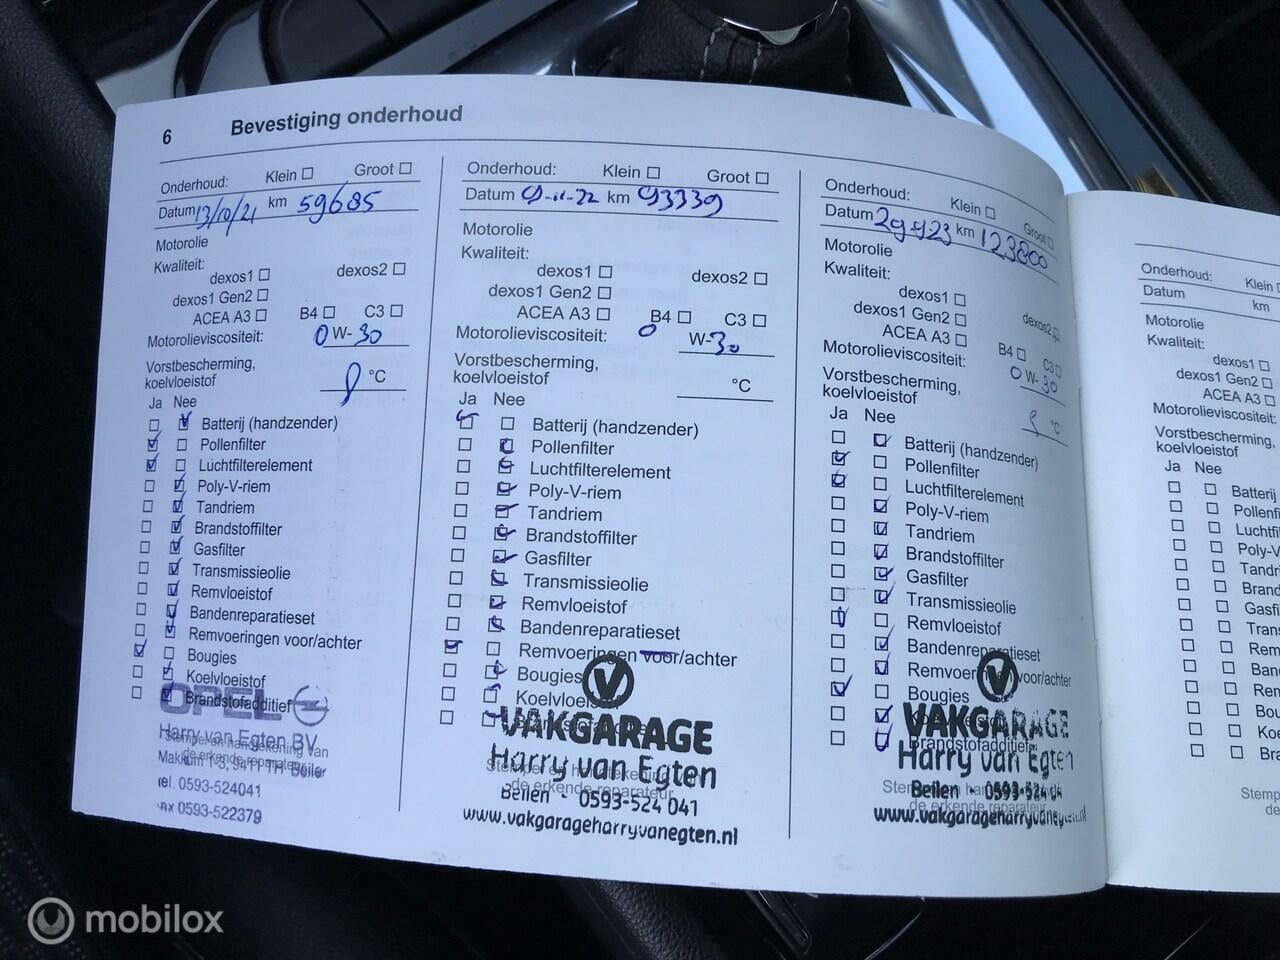 6 Bevestiging onderhoud
Onderhoud: Klein Groot
Datum 13/10/21 km 59685
Motorolie
Kwaliteit:
dexos1 dexos2
dexos1 Gen2
ACEA A3 B4 C3
Motorolieviscositeit: 0 W-30
Vorstbescherming,
koelvloeistof °C
Ja Nee
Batterij (handzender)
Pollenfilter
Luchtfilterelement
Poly-V-riem
Tandriem
Brandstoffilter
Gasfilter
Transmissieolie
Remvloeistof
Bandenreparatieset
Remvoeringen voor/achter
Bougies
Koelvloeistof
Brandstofadditief
OPEL
Harry van Egten BV
Stempel en handtekening van
de erkende reparateur
tel. 0593-524041
fax 0593-522379
Onderhoud: Klein Groot
Datum 9-11-22 km 93339
Motorolie
Kwaliteit:
dexos1 dexos2
dexos1 Gen2
ACEA A3 B4 C3
Motorolieviscositeit: 0 W-30
Vorstbescherming,
koelvloeistof °C
Ja Nee
Batterij (handzender)
Pollenfilter
Luchtfilterelement
Poly-V-riem
Tandriem
Brandstoffilter
Gasfilter
Transmissieolie
Remvloeistof
Bandenreparatieset
Remvoeringen voor/achter
Bougies
Koelvloeistof
VAKGARAGE
Harry van Egten
Stempel en handtekening
de erkende reparateur
Beilen - 0593-524 041
www.vakgarageharryvanegten.nl
Onderhoud: Klein Groot
Datum km 123800
Motorolie
Kwaliteit:
dexos1
dexos1 Gen2 dexos2
ACEA A3 B4 C3
Motorolieviscositeit: 0 W-30
Vorstbescherming,
koelvloeistof °C
Ja Nee
Batterij (handzender)
Pollenfilter
Luchtfilterelement
Poly-V-riem
Tandriem
Brandstoffilter
Gasfilter
Transmissieolie
Remvloeistof
Bandenreparatieset
Remvoeringen voor/achter
Bougies
Brandstofadditief
VAKGARAGE
Harry van Egten
Beilen - 0593-524 04
de erkende reparateur
www.vakgarageharryvanegten.nl
Onderhoud: Klein
Datum km
Motorolie
Kwaliteit:
dexos1
dexos1 Gen2
ACEA A3
Motorolieviscositeit:
Vorstbescherming,
koelvloeistof
Ja Nee
Batterij
Pollenfi
Luchtfil
Poly-V-
Tandri
Brand
Gasfi
Trans
Rem
Ban
Rem
Bou
Koe
Bra
Stemp
de
mobilox